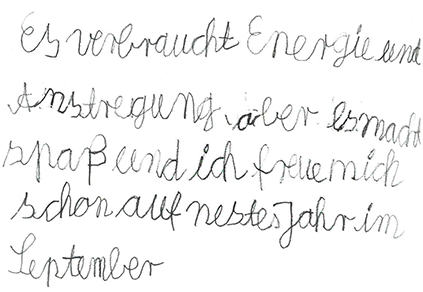 Es verbraucht Energie und
Anstregung, aber es macht
spaß und ich freue mich
schon auf nestes Jahr im
September